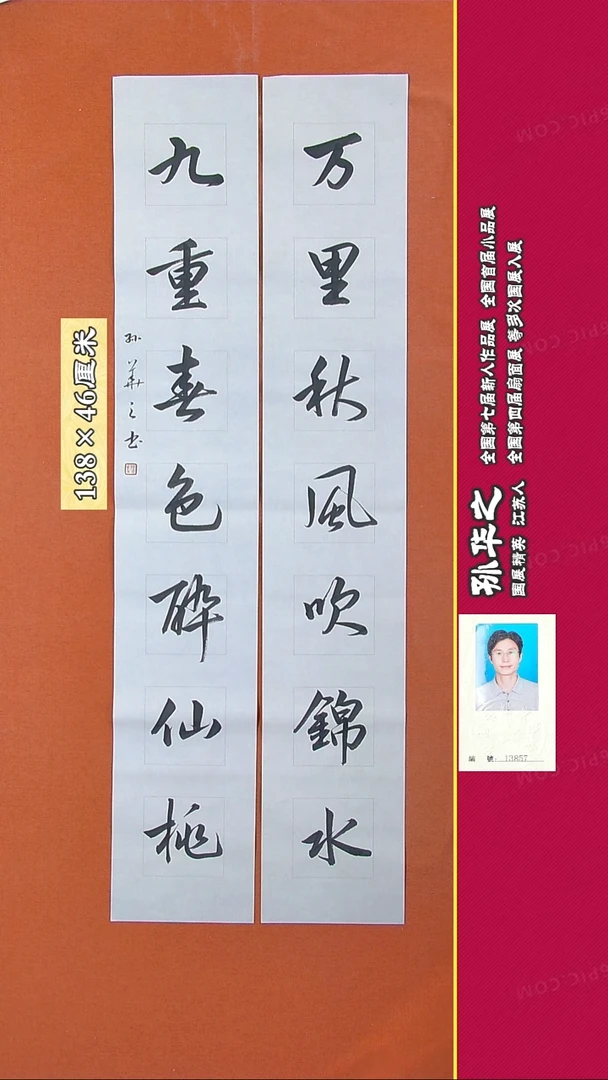 万里秋風吹錦水
九重春色醉仙桃
孙華之书
138×46厘米
孙华之
國展精英 江苏人
全國第七届新人作品展 全國首届小品展
全國第四届扇面展 等多次國展入展
編號:13857